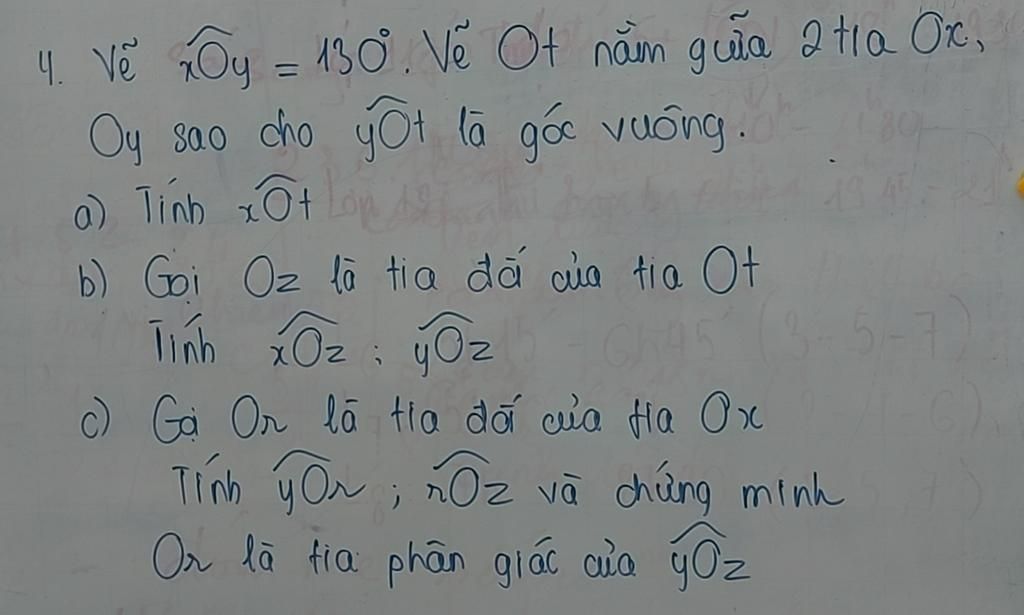 4. Vẽ xOy = 130°. Vẽ Ot nằm giữa 2 tia Ox,
Oy sao cho yOt là góc vuông.
a) Tính xOt
b) Gọi Oz là tia đối của tia Ot
Tính xOz ; yOz
c) Gọi Or là tia đối của tia Ox
Tính yOr ; rOz và chứng minh
Or là tia phân giác của yOz